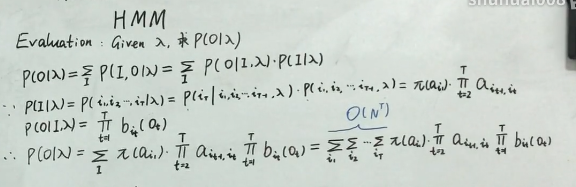 HMM
Evaluation: Given λ, 求 P(O|λ)
P(O|λ) = ∑_I P(I,O|λ) = ∑_I P(O|I,λ)·P(I|λ)
∵ P(I|λ) = P(i₁,i₂,…,i_T|λ) = P(i_T|i₁,i₂,…,i_{T-1},λ)·P(i₁,i₂,…,i_{T-1}|λ) = π(a_{i₁})·∏_{t=2}^{T} a_{i_{t-1},i_t}
P(O|I,λ) = ∏_{t=1}^{T} b_{i_t}(o_t)
O(N^T)
∴ P(O|λ) = ∑_I π(a_{i₁})·∏_{t=2}^{T} a_{i_{t-1},i_t} ∏_{t=1}^{T} b_{i_t}(o_t) = ∑_{i₁}∑_{i₂}…∑_{i_T} π(a_{i₁})·∏_{t=2}^{T} a_{i_{t-1},i_t} ∏_{t=1}^{T} b_{i_t}(o_t)